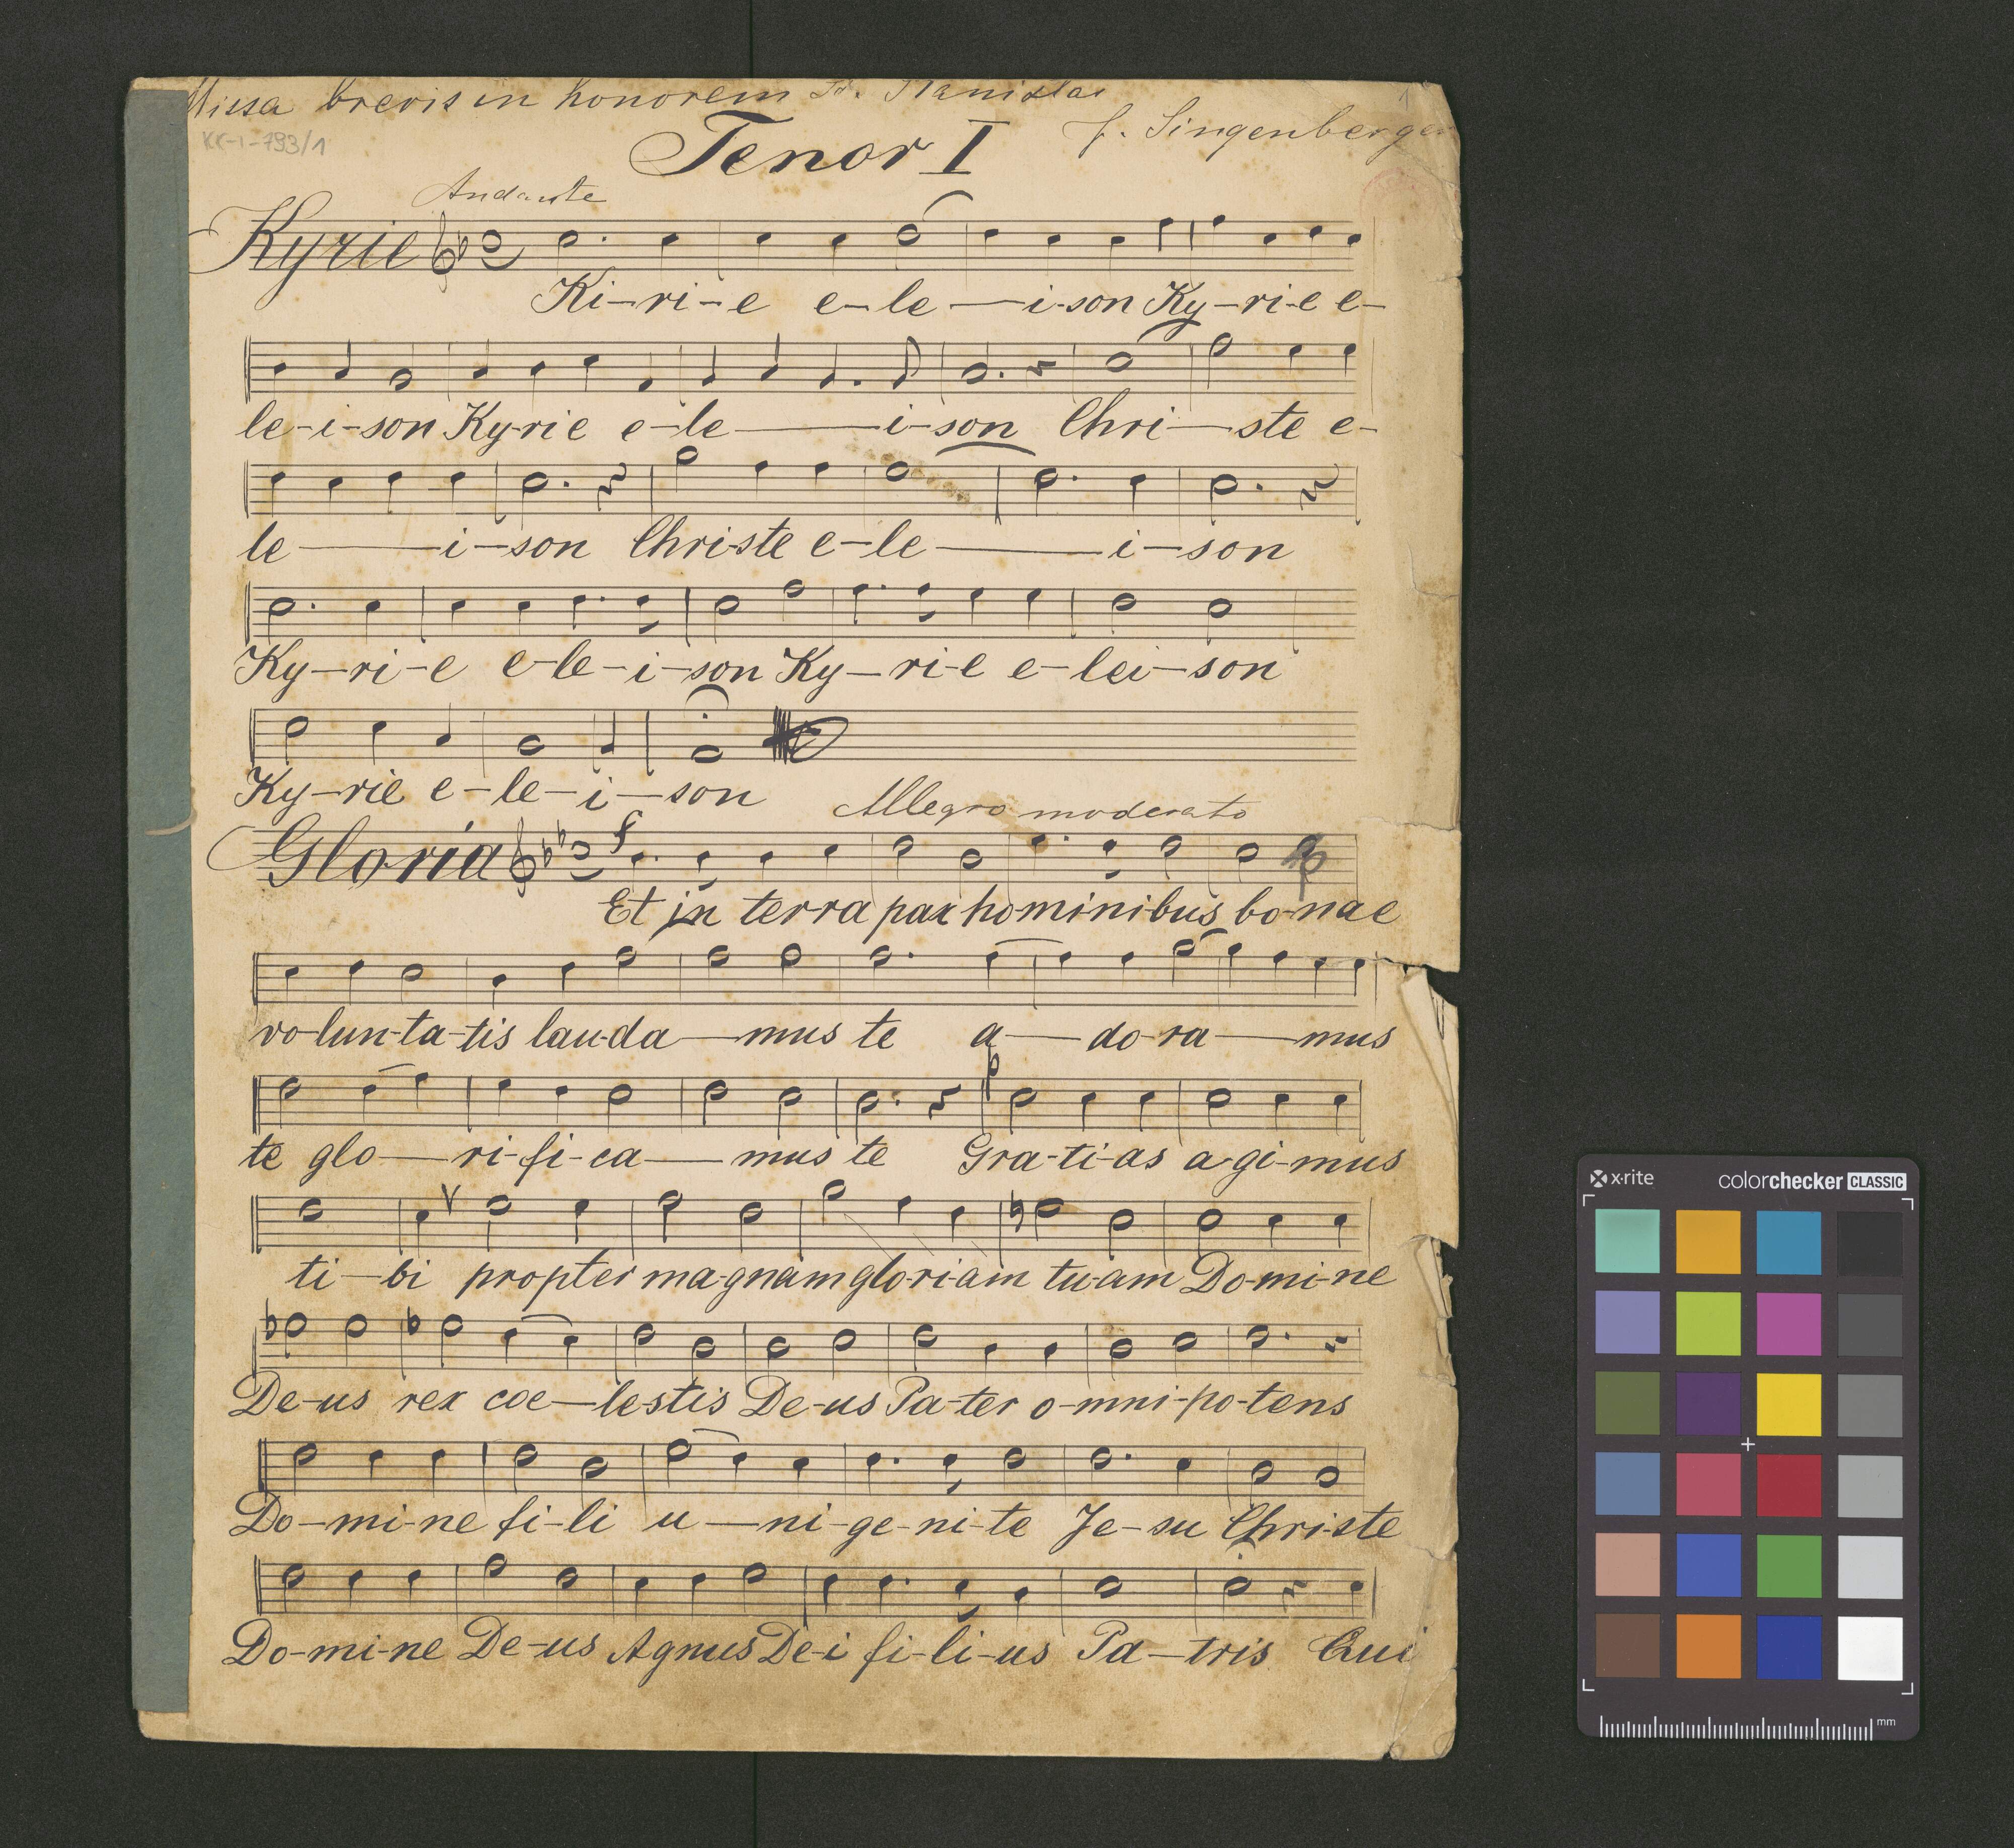 Missa brevis in honorem St. Stanislai
J. Singenberger
1
KK-I-793/1
Tenor I
Andante
Kyrie
Ki-ri-e e-le-i-son Ky-ri-e e-
le-i-son Ky-rie e-le-i-son Chri-ste e-
le-i-son Christe e-le-i-son
Ky-ri-e e-le-i-son Ky-ri-e e-lei-son
Ky-rie e-le-i-son
Allegro moderato
Gloria f
Et in terra pax hominibus bo-nae
vo-lun-ta-tis lau-da-mus te a-do-ra-mus
te glo-ri-fi-ca-mus te Gra-ti-as a-gi-mus
p
ti-bi propter ma-gnam glo-ri-am tu-am Do-mi-ne
De-us rex coe-le-stis De-us Pa-ter o-mni-po-tens
Do-mi-ne fi-li u-ni-ge-ni-te Je-su Chri-ste
Do-mi-ne De-us Agnus De-i fi-li-us Pa-tris Qui
x·rite colorchecker CLASSIC
mm